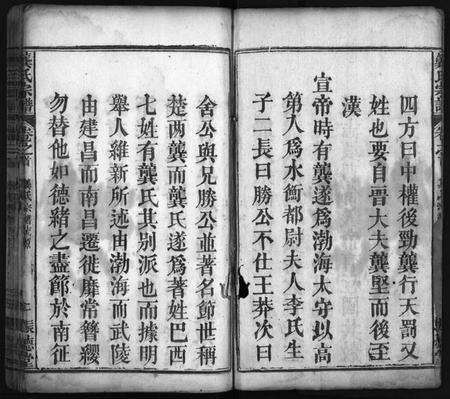 四方曰中權後勁龔行天罰又
姓也要自晋大夫龔堅而後至
漢
宣帝時有龔遂爲渤海太守以高
第入爲水衡都尉夫人李氏生
子二長曰勝公不仕王莽次曰
舍公與兄勝公並著名節世稱
楚两龔而龔氏遂爲著姓巴西
七姓有龔氏其別派也而據明
舉人維新所述由渤海而武陵
由建昌而南昌遷徙靡常簪纓
勿替他如德緒之盡節於南征
龔氏宗譜